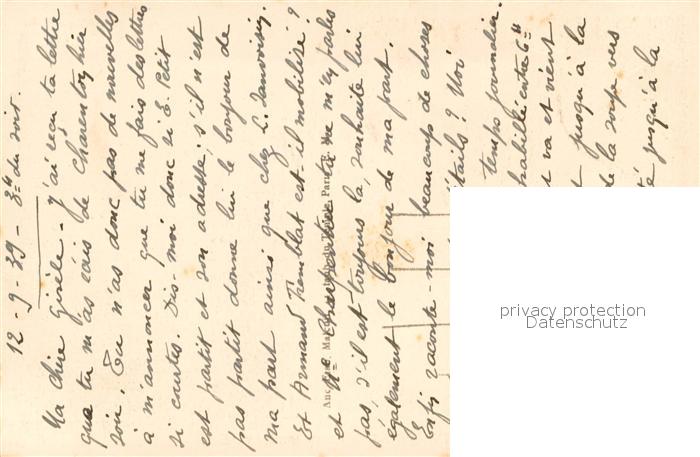 12-9-39 - 8h du soir.
Ma chère Gisèle - J'ai reçu ta lettre
que tu m'as écris de Charenton hier
soir. Tu n'as donc pas de nouvelles
à m'annoncer que tu me fais des lettres
si courtes. Dis-moi donc si E. Petit
est partit et son adresse. s'il n'est
pas partit donne lui le bonjour de
ma part ainsi que chez L.
Et Armand Tremblat est il mobilisé?
et Me tu ne m'en parles
pas, s'il est toujours la, souhaite lui
également le bonjour de ma part.
Enfin raconte-moi beaucoup de choses
détails? Moi
temps journalier.
habillé entre 6h
t va et vient
t jusqu'à la
de la soupe vers
té jusqu'à la
privacy protection
Datenschutz